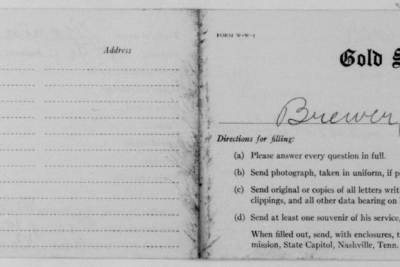 Address
FORM W-W-1
Gold S
Brewer,
Directions for filling:
(a) Please answer every question in full.
(b) Send photograph, taken in uniform, if p
(c) Send original or copies of all letters writ
clippings, and all other data bearing on
(d) Send at least one souvenir of his service,
When filled out, send, with enclosures, t
mission, State Capitol, Nashville, Tenn.